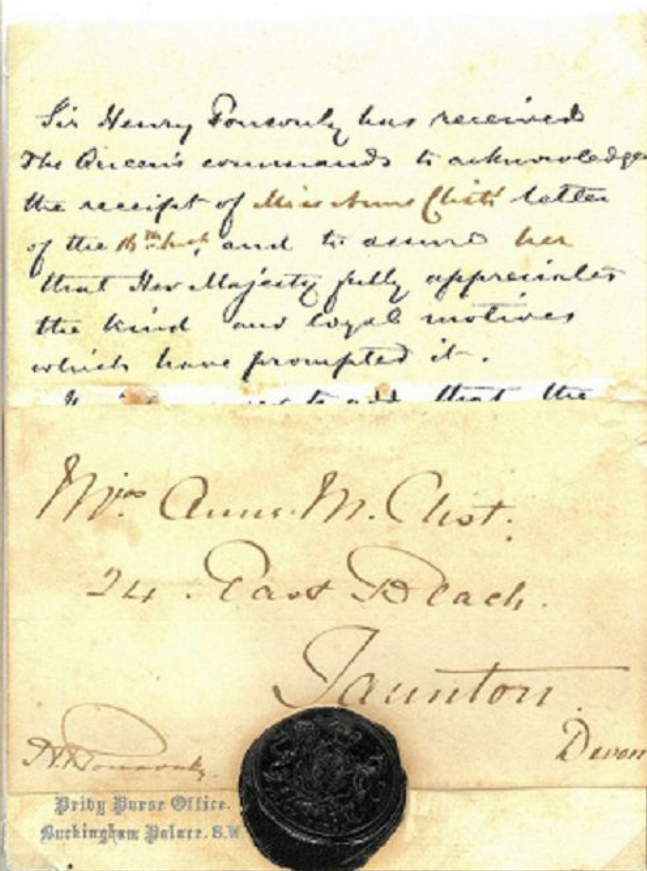 Sir Henry Ponsonby has received
The Queen's commands to acknowledge
the receipt of Miss Anne Clist's letter
of the inst, and to assure her
that Her Majesty fully appreciates
the kind and loyal motives
which have prompted it.
to add that the
Miss Anne M. Clist.
24. East Reach.
Taunton.
Devon
H Ponsonby.
Privy Purse Office.
Buckingham Palace. S.W